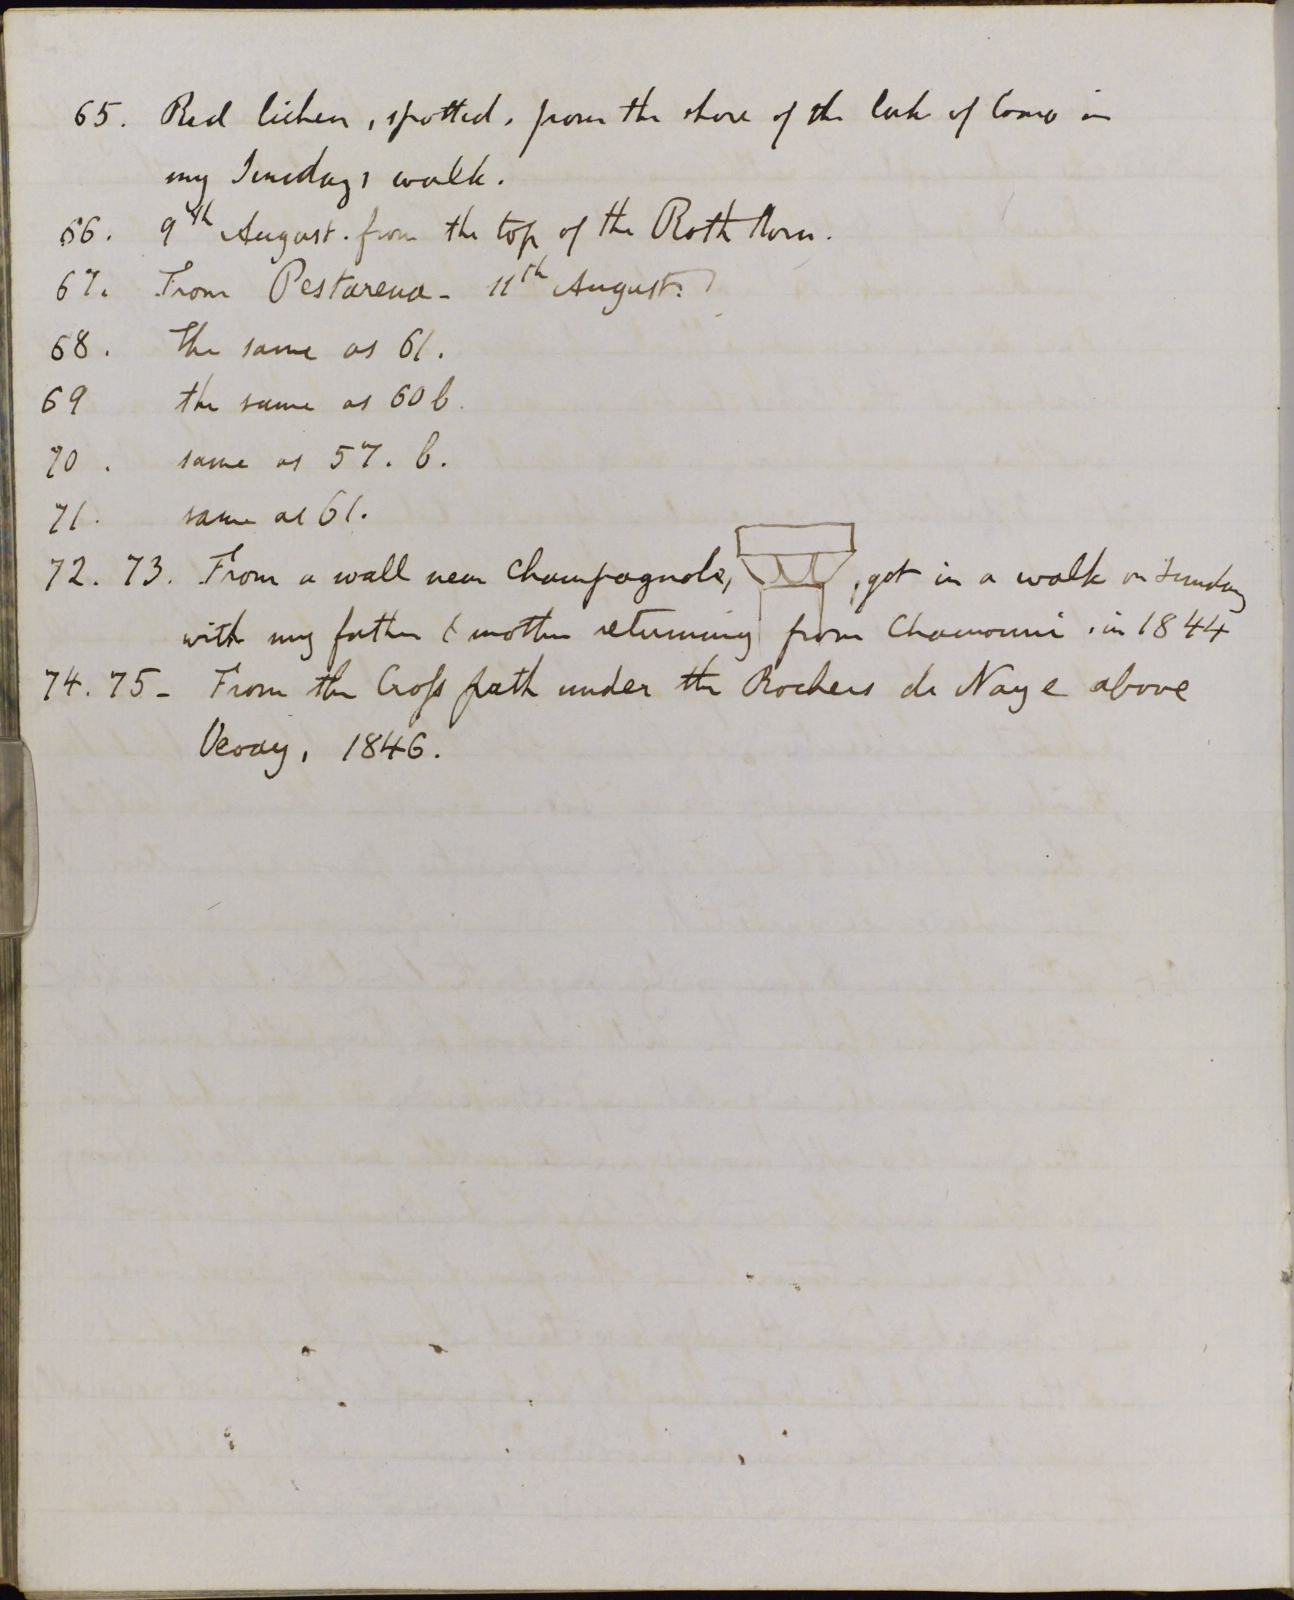 65. Red lichen, spotted, from the shore of the lake of Como in
my Sunday's walk.
66. 9th August. from the top of the Roth horn.
67. From Pestarena - 11th August.
68. The same as 61.
69 the same as 60 b.
70. same as 57. b.
71. same as 61.
72. 73. From a wall near Champagnole, , got in a walk on Sunday
with my father & mother returning from Chamouni. in 1844
74. 75 - From the Cross path under the Rochers de Naye above
Vevay, 1846.